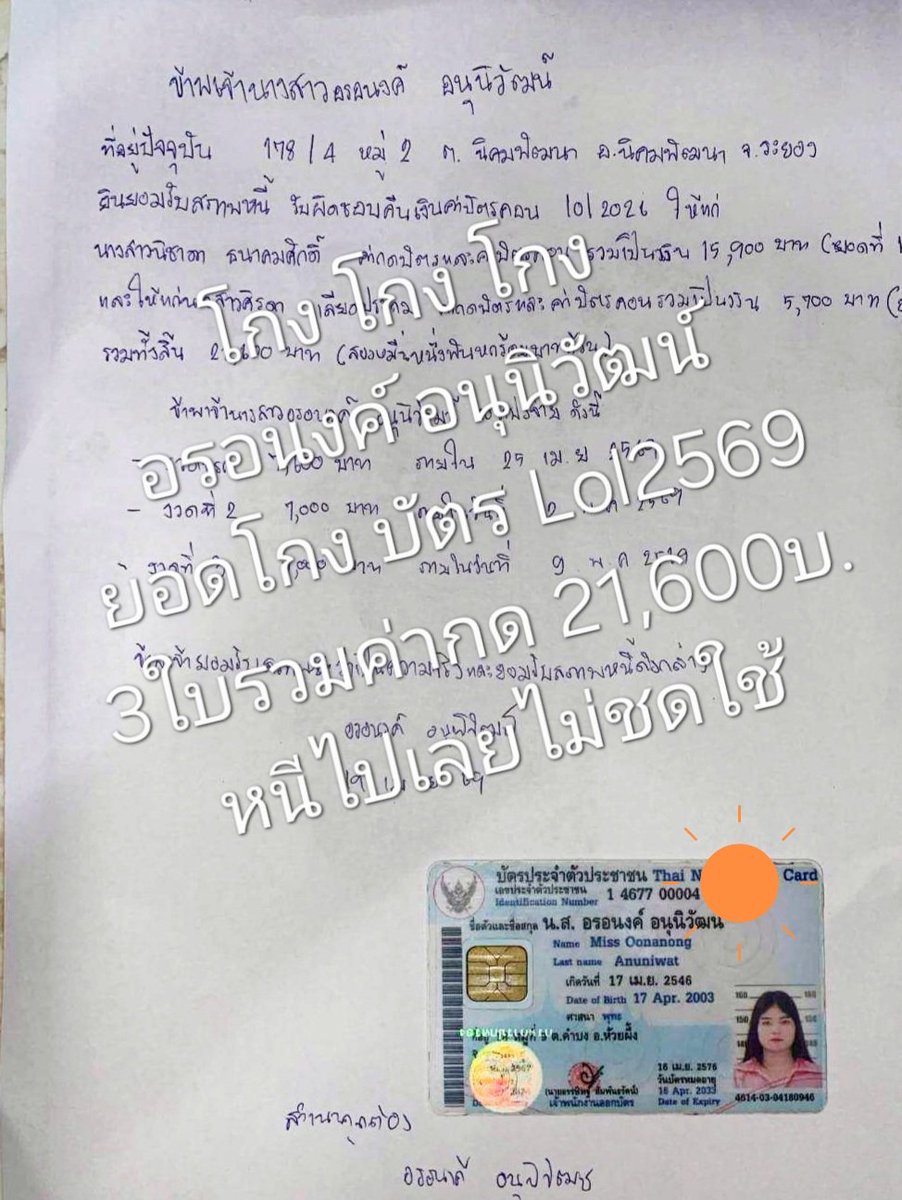 ข้าพเจ้านางสาวอรอนงค์ อนุนิวัฒน์
ที่อยู่ปัจจุบัน 178/4 หมู่ 2 ต. นิคมพัฒนา อ.นิคมพัฒนา จ.ระยอง
ยินยอมรับสภาพหนี้ รับผิดชอบคืนเงินค่าบัตรคอน lol 2026 ให้แก่
นางสาวนิชาดา ธนาคมศักดิ์ ค่ากดบัตรและค่าบัตรคอนรวมเป็นเงิน 15,900 บาท (ยอดที่ 1
และให้แก่ ค่ากดบัตรและค่าบัตรคอนรวมเป็นเงิน 5,700 บาท
รวมทั้งสิ้น บาท (สองหมื่นหนึ่งพันหกร้อยบาทถ้วน)
โกง โกง โกง
อรอนงค์ อนุนิวัฒน์
ข้าพเจ้านางสาวอรอนงค์ ดังนี้
บาท ภายใน 25 เม.ย
ยอดโกง บัตร Lol2569
- งวดที่ 2 7,000 บาท
บาท ภายในวันที่ 9 พ.ค 2569
3ใบรวมค่ากด 21,600บ.
และยอมรับสภาพหนี้ดังกล่าว
หนีไปเลยไม่ชดใช้
อรอนงค์
บัตรประจำตัวประชาชน Thai N Card
เลขประจำตัวประชาชน
Identification Number 1 4677 00004
ชื่อตัวและชื่อสกุล น.ส. อรอนงค์ อนุนิวัฒน์
Name Miss Oonanong
Last name Anuniwat
เกิดวันที่ 17 เม.ย. 2546
Date of Birth 17 Apr. 2003
ศาสนา พุทธ
ต.คำบง อ.ห้วยผึ้ง
16 เม.ย. 2576
วันบัตรหมดอายุ
16 Apr. 2033
เจ้าพนักงานออกบัตร Date of Expiry
4614-03-04180946
สำเนาถูกต้อง
อรอนงค์